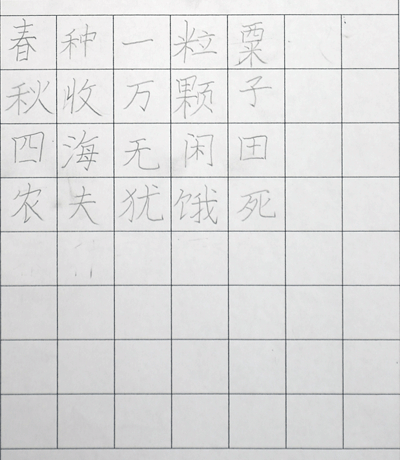 春种一粒粟
秋收万颗子
四海无闲田
农夫犹饿死